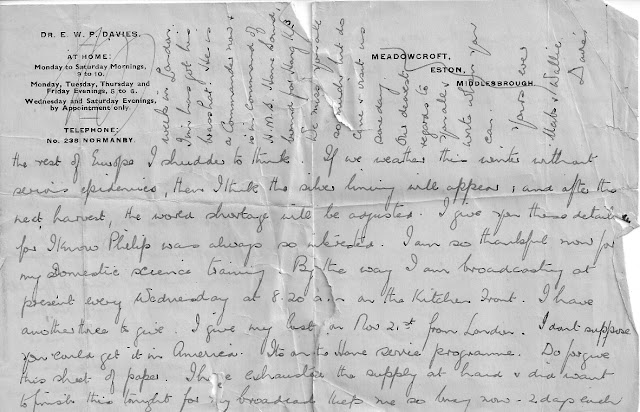 DR. E. W. P. DAVIES.
AT HOME:
Monday to Saturday Mornings,
9 to 10.
Monday, Tuesday, Thursday and
Friday Evenings, 5 to 6.
Wednesday and Saturday Evenings,
by Appointment only.
TELEPHONE:
No. 238, NORMANBY.
MEADOWCROFT,
ESTON,
MIDDLESBROUGH.
the rest of Europe I shudder to think. If we weather this winter without
serious epidemics, then I think the silver lining will appear; and after the
next harvest, the world shortage will be adjusted. I give you these details
for I know Philip was always so interested. I am so thankful now for
my Domestic science training. By the way I am broadcasting at
present every Wednesday at 8.20 a.m. on the Kitchen Front. I have
another three to give. I give my last on Nov 21st from London. I dont suppose
you could get it in America. Its on the Home service programme. Do forgive
this sheet of paper. I have exhausted the supply at hand & did want
to finish this tonight for my broadcast keep me so busy now - 2 days each
week in London.
Jim has got his
brass hat. He is
a Commander now &
is in command of
H.M.S.
bound for Hong K
We miss you all
so much but do
come & visit us
someday.
Our dearest
regards to
you all &
write when you
can.
Yours ever
& Wallie
Davies